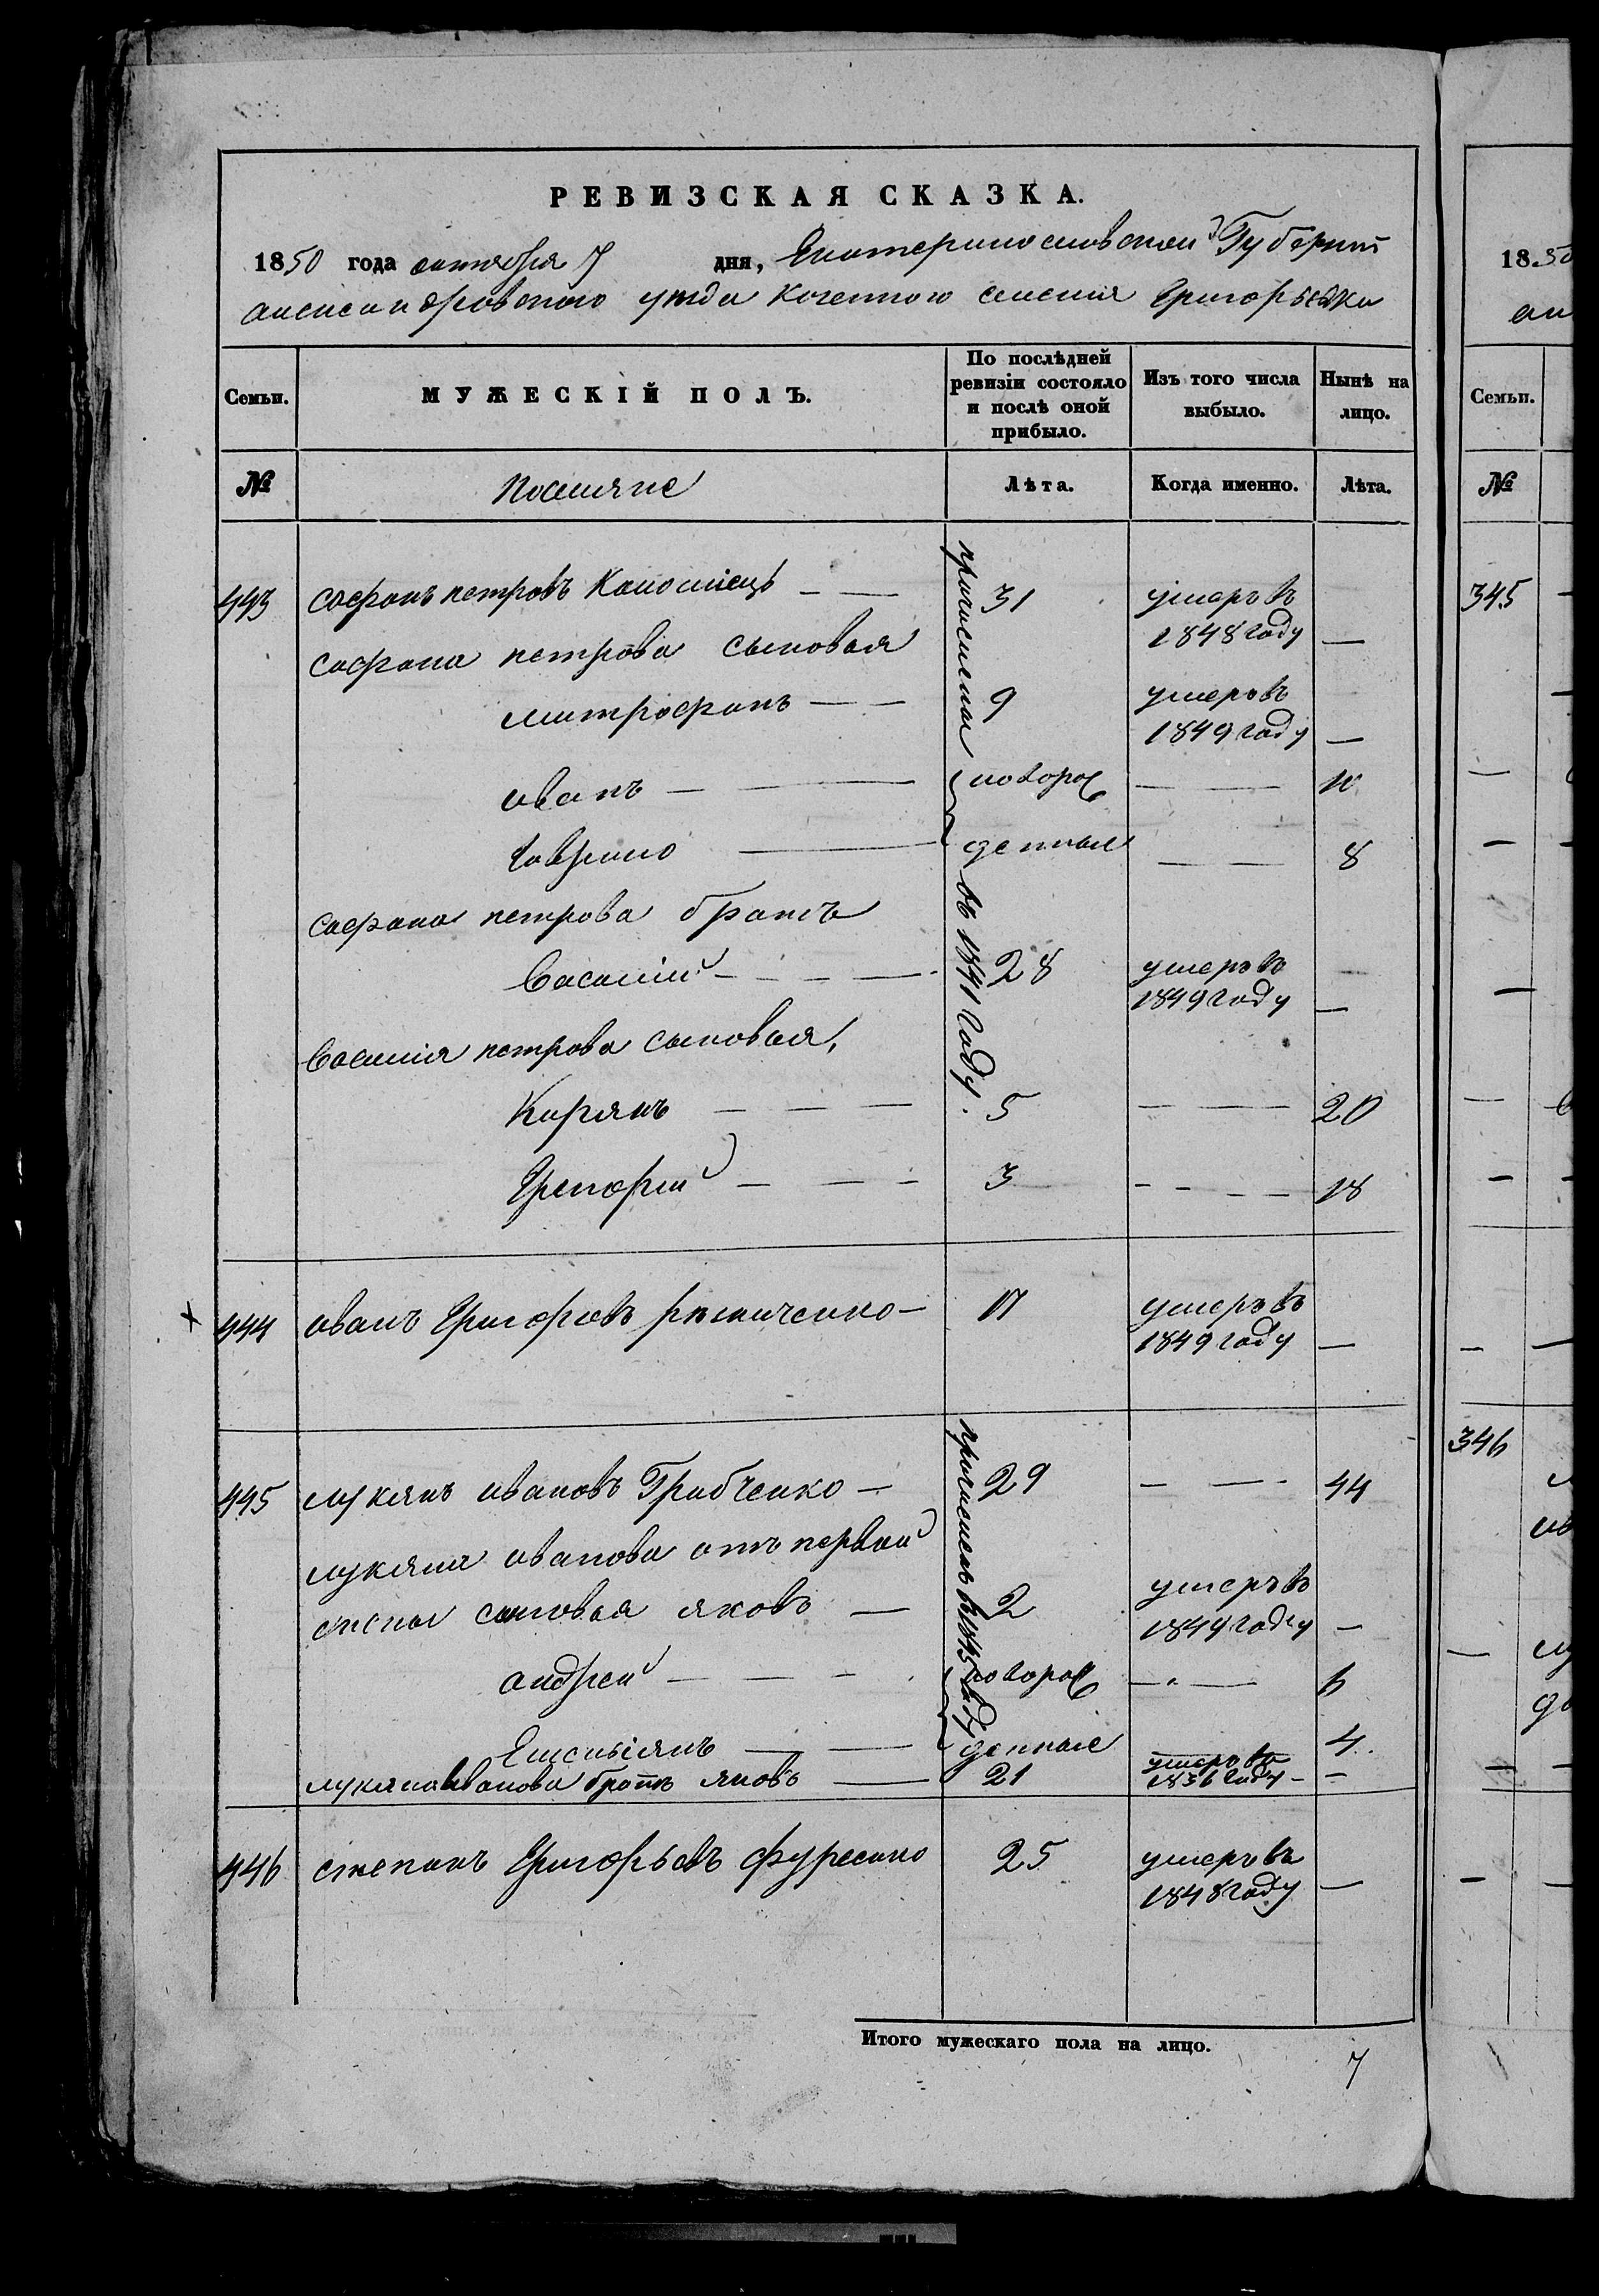 РЕВИЗСКАЯ СКАЗКА.
1850 года октября 7 дня, Екатеринославской Губернии
александровского уезда Казенного селения Григорьевки
Семьи.
МУЖЕСКІЙ ПОЛЪ.
По послѣдней ревизіи состояло и послѣ оной прибыло.
Изъ того числа выбыло.
Нынѣ на лицо.
№
поселяне
Лѣта.
Когда именно.
Лѣта.
443 софронъ петровъ Коломіецъ — — 31 умеръ въ
1848 году —
софрона петрова сыновья
митрофанъ — — 9 умеръ въ
1849 году —
иванъ — — новорож — — 10
гаврило — денные — — 8
софрона петрова братъ
Василій — — — 28 умеръ въ
1849 году —
Василія петрова сыновья,
Кирянъ — — — 5 — — 20
Григорій — — — 3 — — — — 18
причислены въ 1841 году.
444 иванъ Григорьевъ — 17 умеръ въ
1849 году —
445 лукянъ ивановъ Грибченко — 29 — — 44
лукяна иванова отъ первой
жены сыновья яковъ — 2 умеръ въ
1849 году —
андрей — — — новорож — — 6
Емельянъ — — денные 4.
лукяна иванова братъ яковъ — 21 умеръ въ
1836 году — —
причислены въ 1845 году
446 степанъ Григорьевъ фурсенко 25 умеръ въ
1848 году —
Итого мужескаго пола на лицо.
7
18.50
Семьи.
№
345
346